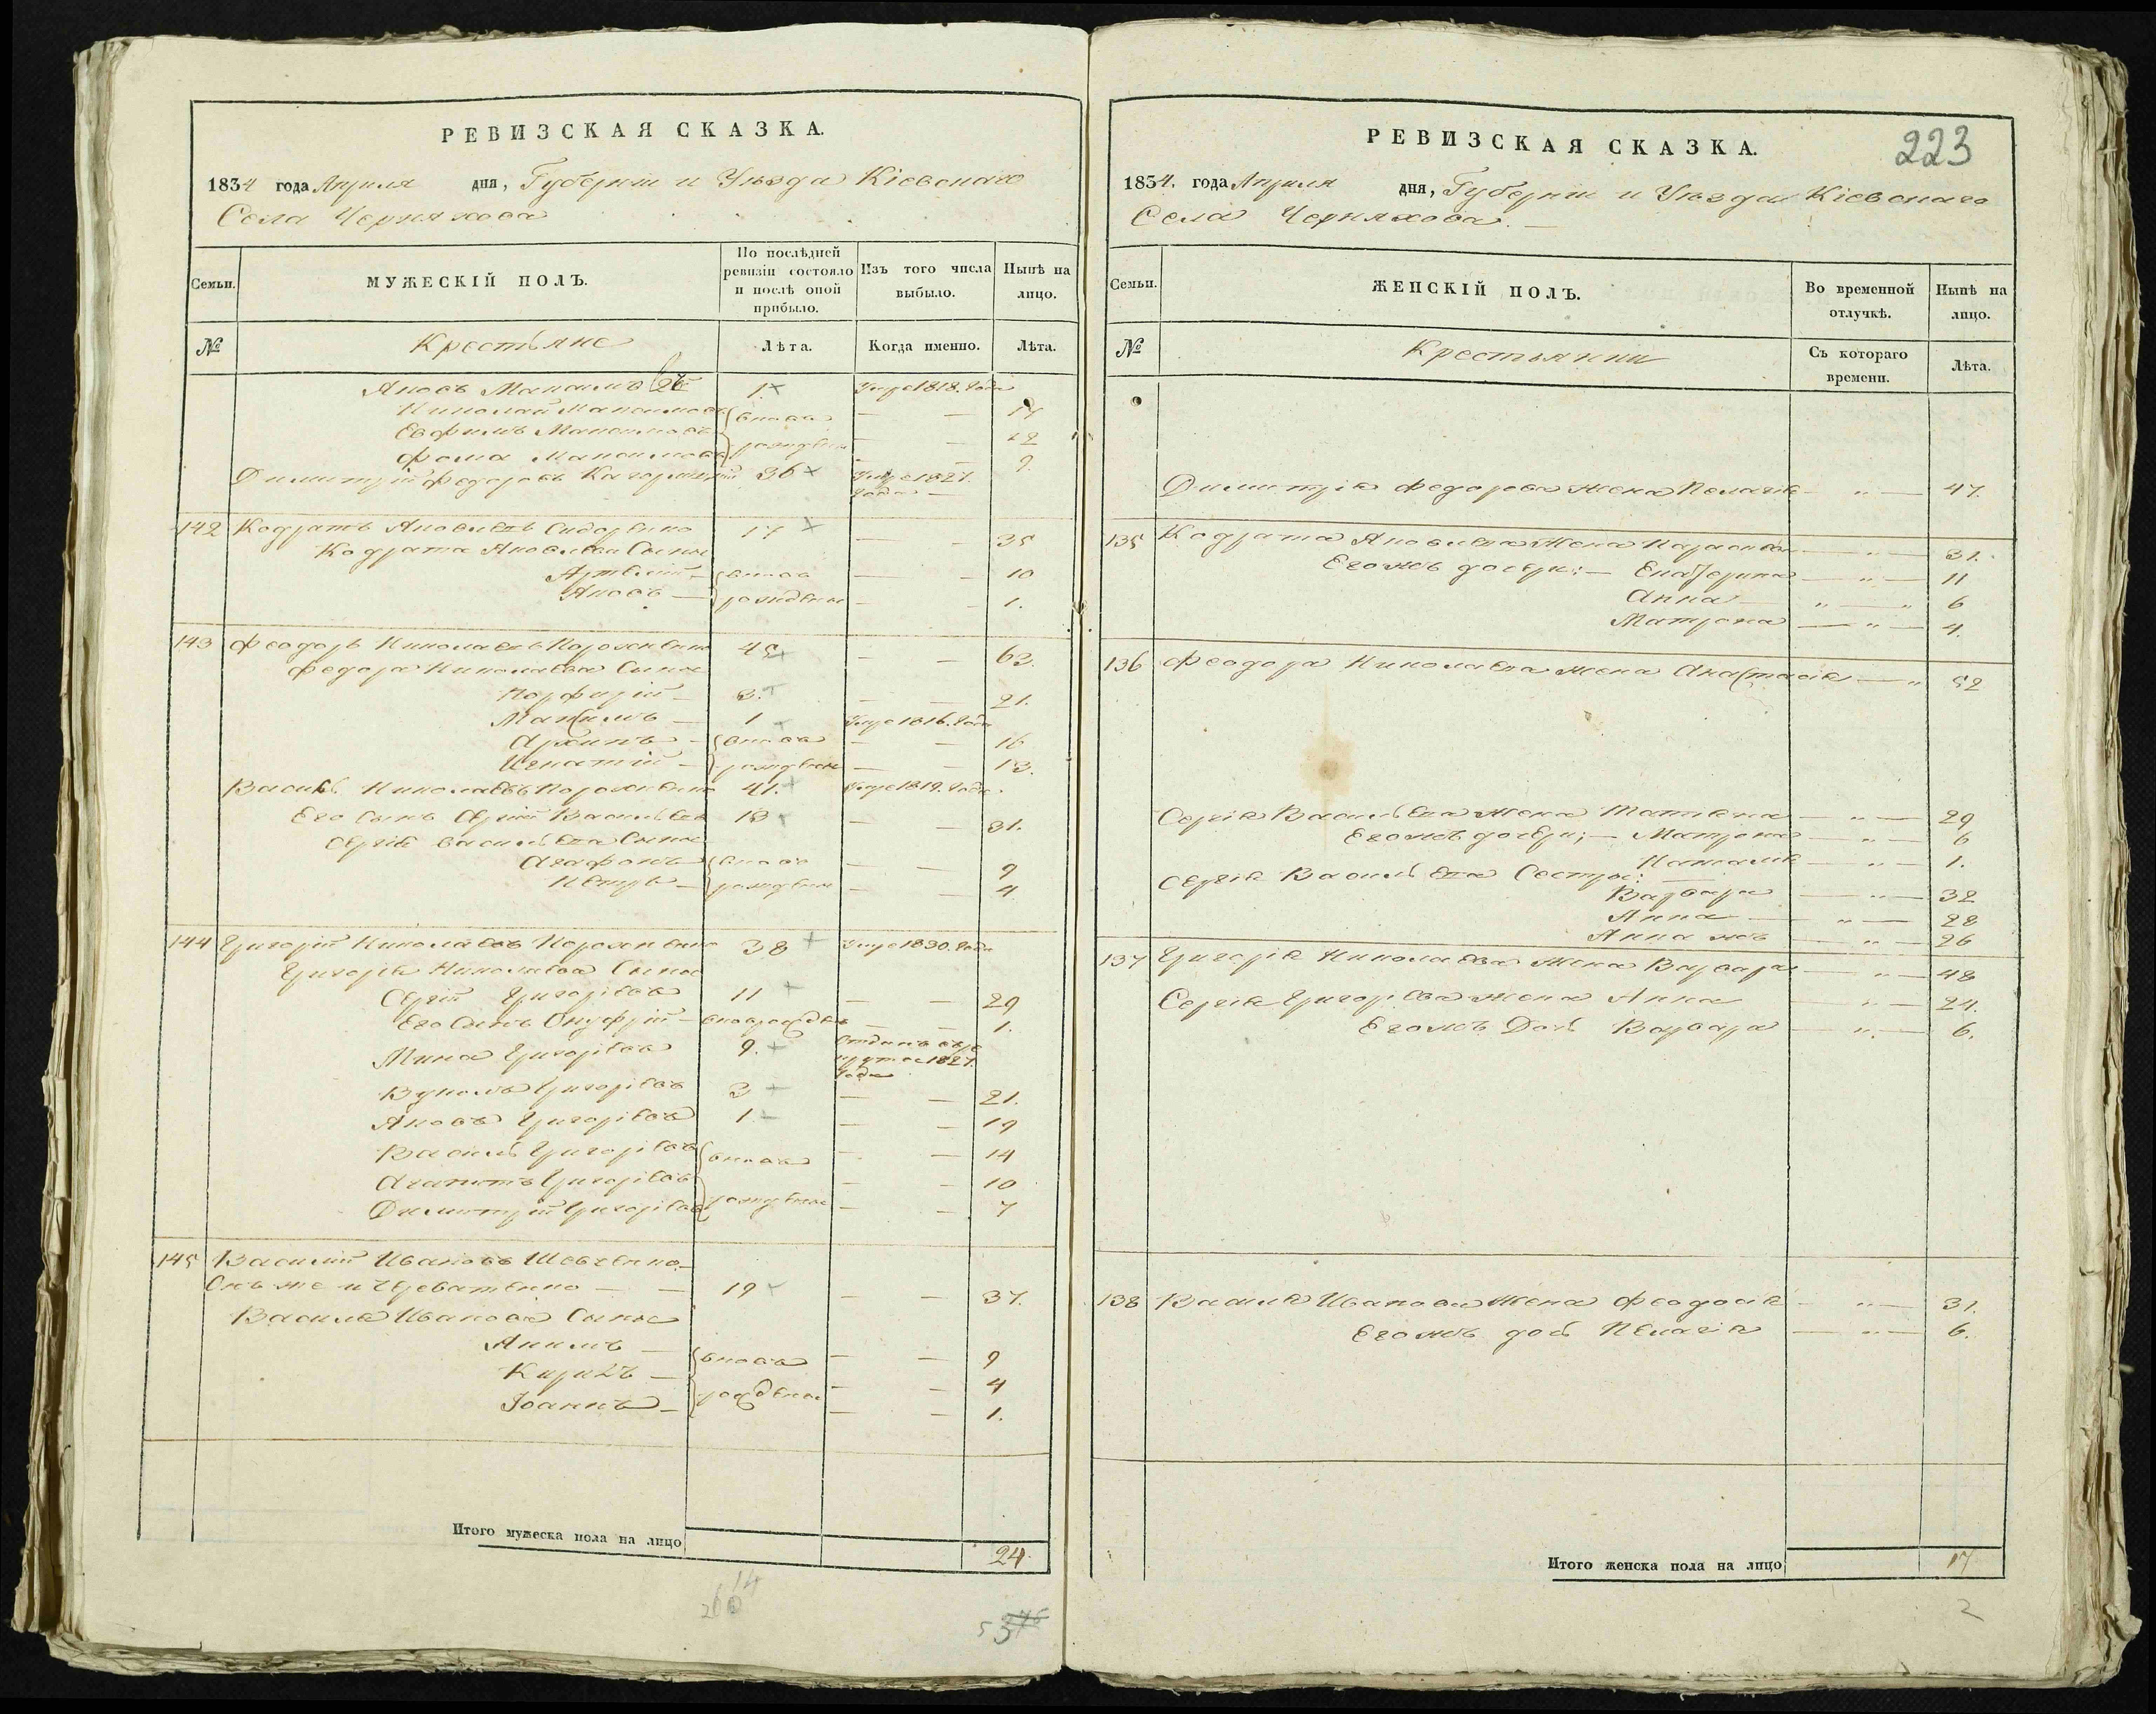 РЕВИЗСКАЯ СКАЗКА.
1834 года Апреля дня, Губерніи и Уѣзда Кіевскаго
Села Черняхова
Семьи. МУЖЕСКІЙ ПОЛЪ. По послѣдней ревизіи состояло и послѣ оной прибыло. Изъ того числа выбыло. Нынѣ на лицо.
№ Крестьяне Лѣта. Когда именно. Лѣта.
Яковъ Максимовъ 2й 1 Умре 1818. года
Николай Максимовъ вновь — — 17
Евфимъ Максимовъ рожденны — — 12
Фома Максимовъ — — 9
Димитрій Федоровъ 36 Умре 1827. года —
142 Кодратъ Яковлевъ Сидоренко 17 — — 35
Кодрата Яковлева Сыны
Артемій — вновь — — 10
Яковъ — рожденны — — 1.
143 Феодоръ Николаевъ Корженко 45 — — 63.
Федора Николаева Сыны
Порфирій — 3. — — 21.
Максимъ — 1 Умре 1816. года
Архипъ — вновь — — 16
Игнатій — рожденны — — 13.
Василь Николаевъ 41. Умре 1819. года.
Его Сынъ Сергій Васильевъ 13 — — 31.
Сергія Васильева Сыны
Агафонъ вновь — — 9
Петръ — рожденны — — 4
144 Григорій Николаевъ 38 Умре 1830. года
Григорія Николаева Сыны
Сергій Григорьевъ 11 — — 29
Его Сынъ Онуфрій — вноврожден — — 1.
Мина Григорьевъ 9. Отданъ въ рекруты 1827. года
Вукола Григорьевъ 3 — — 21.
Яковъ Григорьевъ 1 — — 19
Василь Григорьевъ вновь — — 14
Агапитъ Григорьевъ — — 10
Димитрій Григорьевъ рожденны — — 7
145 Василій Ивановъ Шевченко
Онъ же и Череватенко — — 19 — — 37.
Василя Иванова Сыны
Акимъ — вновь — — 9
Кирилъ — рожденны — — 4
Іоаннъ — — — 1.
Итого мужеска пола на лицо 24.
14
223
РЕВИЗСКАЯ СКАЗКА.
1834. года Апреля дня, Губерніи и Уѣзда Кіевскаго
Села Черняхова. —
Семьи. ЖЕНСКІЙ ПОЛЪ. Во временной отлучкѣ. Нынѣ на лицо.
№ Крестьянки Съ котораго времени. Лѣта.
Димитрія Федорова жена Пелагія — " — 47.
135 Кодрата Яковлева жена Параскева — " — 31.
Его жъ дочери: — Екатерина — " — 11
Анна — " — " 6
Матрона — " — 4.
136 Феодора Николаева жена Анастасія — " 52
Сергія Васильева жена Татіяна — " — 29
Его жъ дочери; — Матрона — " — 6
Наталія — " — 1.
Сергія Васильева Сестры: —
Варвара — " — 32
Анна — " — 28
Анна жъ — " — 26
137 Григорія Николаева жена Варвара — " — 48
Сергія Григорьева жена Анна — " — 24.
Его жъ Дочь Варвара — " — 6.
138 Василя Иванова жена Феодосія — " — 31.
Его жъ дочь Пелагія — " — 6.
Итого женска пола на лицо 17
2